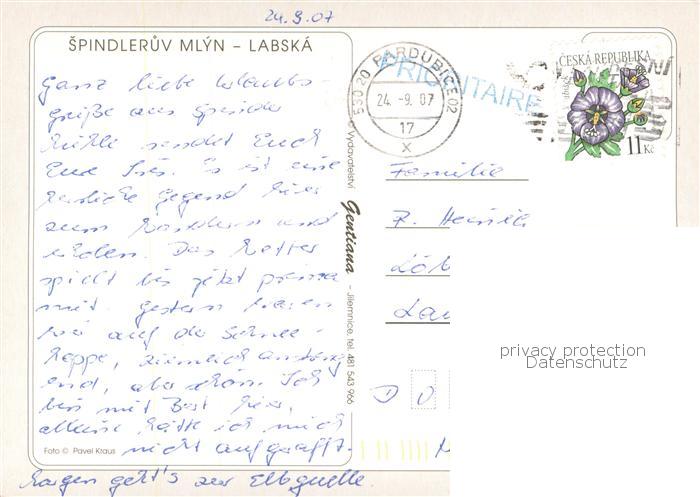 24.9.07
ŠPINDLERŮV MLÝN – LABSKÁ
Ganz liebe Urlaubs-
grüße aus Spindler
Mühle sendet Euch
Eure Inis. Es ist eine
herrliche Gegend hier
zum Wandern und
radeln. Das Wetter
spielt bis jetzt prima
mit. Gestern waren
wir auf der Schnee-
koppe, ziemlich anstreng
end, aber schön. Ich
bin mit Bert hier,
alleine hätte ich mich
nicht aufgerafft.
Morgen geht's zur Elbquelle.
Foto © Pavel Kraus
Vydavatelství Gentiana – Jilemnice, tel. 481 543 966
PRIORITAIRE
530 20 PARDUBICE 02
24. -9. 07
17
X
ČESKÁ REPUBLIKA
11 Kč
Familie
R. Heinrich
Löb
Lau
D 0
privacy protection
Datenschutz